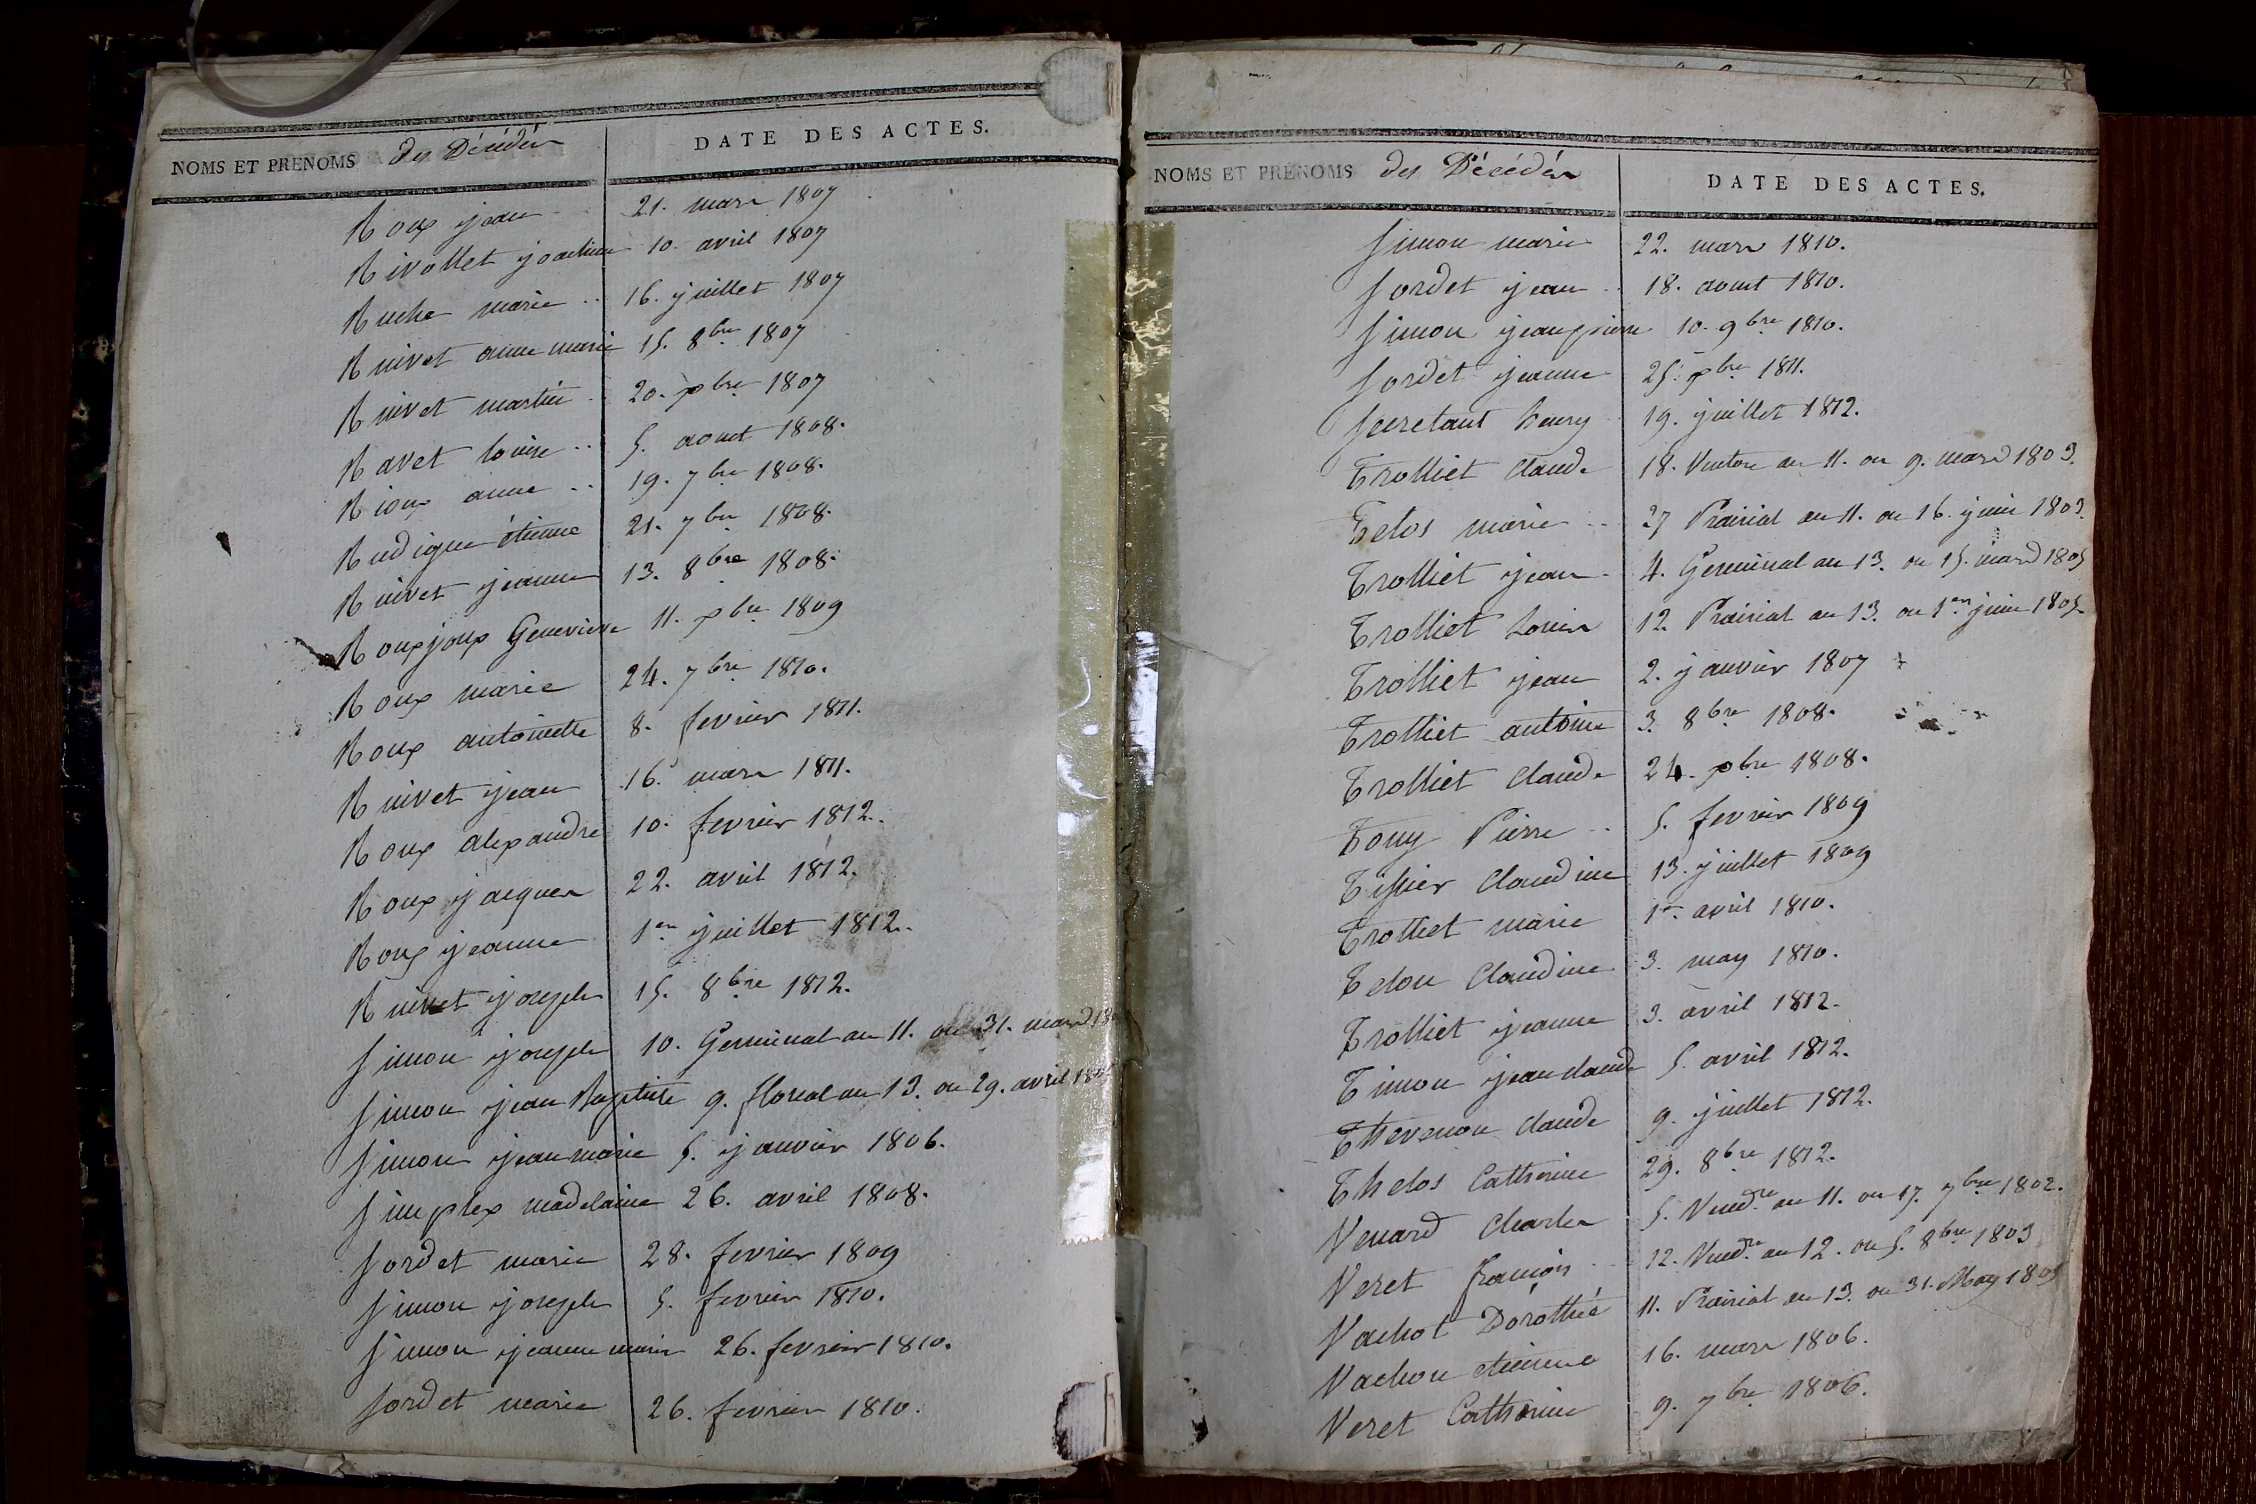 NOMS ET PRENOMS des Décédés
DATE DES ACTES.
Roux jean 21. mars 1807
Rivollet joachim 10. avril 1807
Ruche marie .. 16. juillet 1807
Ruivet anne marie 15. 8bre 1807
Ruivet martin 20. xbre 1807
Ravet louise .. 5. aout 1808.
Rioux anne .. 19. 7bre 1808.
Rudigue étienne 21. 7bre 1808.
Ruivet jeanne 13. 8bre 1808.
Rouxjoux Genevieve 11. xbre 1809
Roux marie 24. 7bre 1810.
Roux antoinette 8. fevrier 1811.
Ruivet jean 16. mars 1811.
Roux alexandre 10. fevrier 1812.
Roux jacques 22. avril 1812.
Roux jeanne 1er juillet 1812.
Ruivet joseph 15. 8bre 1812.
Simon joseph 10. Germinal an 11. ou 31. mars
Simon jean Baptiste 9. floreal an 13. ou 29. avril
Simon jeanmarie 5. janvier 1806.
Simplex madelaine 26. avril 1808.
Sordet marie 28. fevrier 1809
Simon joseph 5. fevrier 1810.
Simon jeanne marie 26. fevrier 1810.
Sordet marie 26. fevrier 1810.
NOMS ET PRENOMS des Décédés
DATE DES ACTES.
Simon marie 22. mars 1810.
Sordet jean .. 18. aout 1810.
Simon jeanpierre 10. 9bre 1810.
Sordet jeanne 25. xbre 1811.
Secretant henry 19. juillet 1812.
Trolliet Claude 18. Ventose an 11. ou 9. mars 1803.
Telos marie .. 27 Prairial an 11. ou 16. juin 1803.
Trolliet jean . 4. Germinal an 13. ou 15. mars 1805
Trolliet Louis 12. Prairial an 13. ou 1er juin 1805.
Trolliet jean 2. janvier 1807
Trolliet antoine 3. 8bre 1808.
Trolliet Claude 24. xbre 1808.
Tony Pierre .. 5. fevrier 1809
Tissier Claudine 13. juillet 1809
Trolliet marie 1er avril 1810.
Telou Claudine 3. may 1810.
Trolliet jeanne 3. avril 1812.
Timon jeanclaude 5. avril 1812.
Thevenon Claude 9. juillet 1812.
Thelos Catherine 29. 8bre 1812.
Venard Charles 5. Vendre an 11. ou 17. 7bre 1802.
Veret françois .. 12. Vendre an 12. ou 5. 8bre 1803
Vachot Dorothée 11. Prairial an 13. ou 31. May 1805
Vachon etienne 16. mars 1806.
Veret Catherine 9. 7bre 1806.